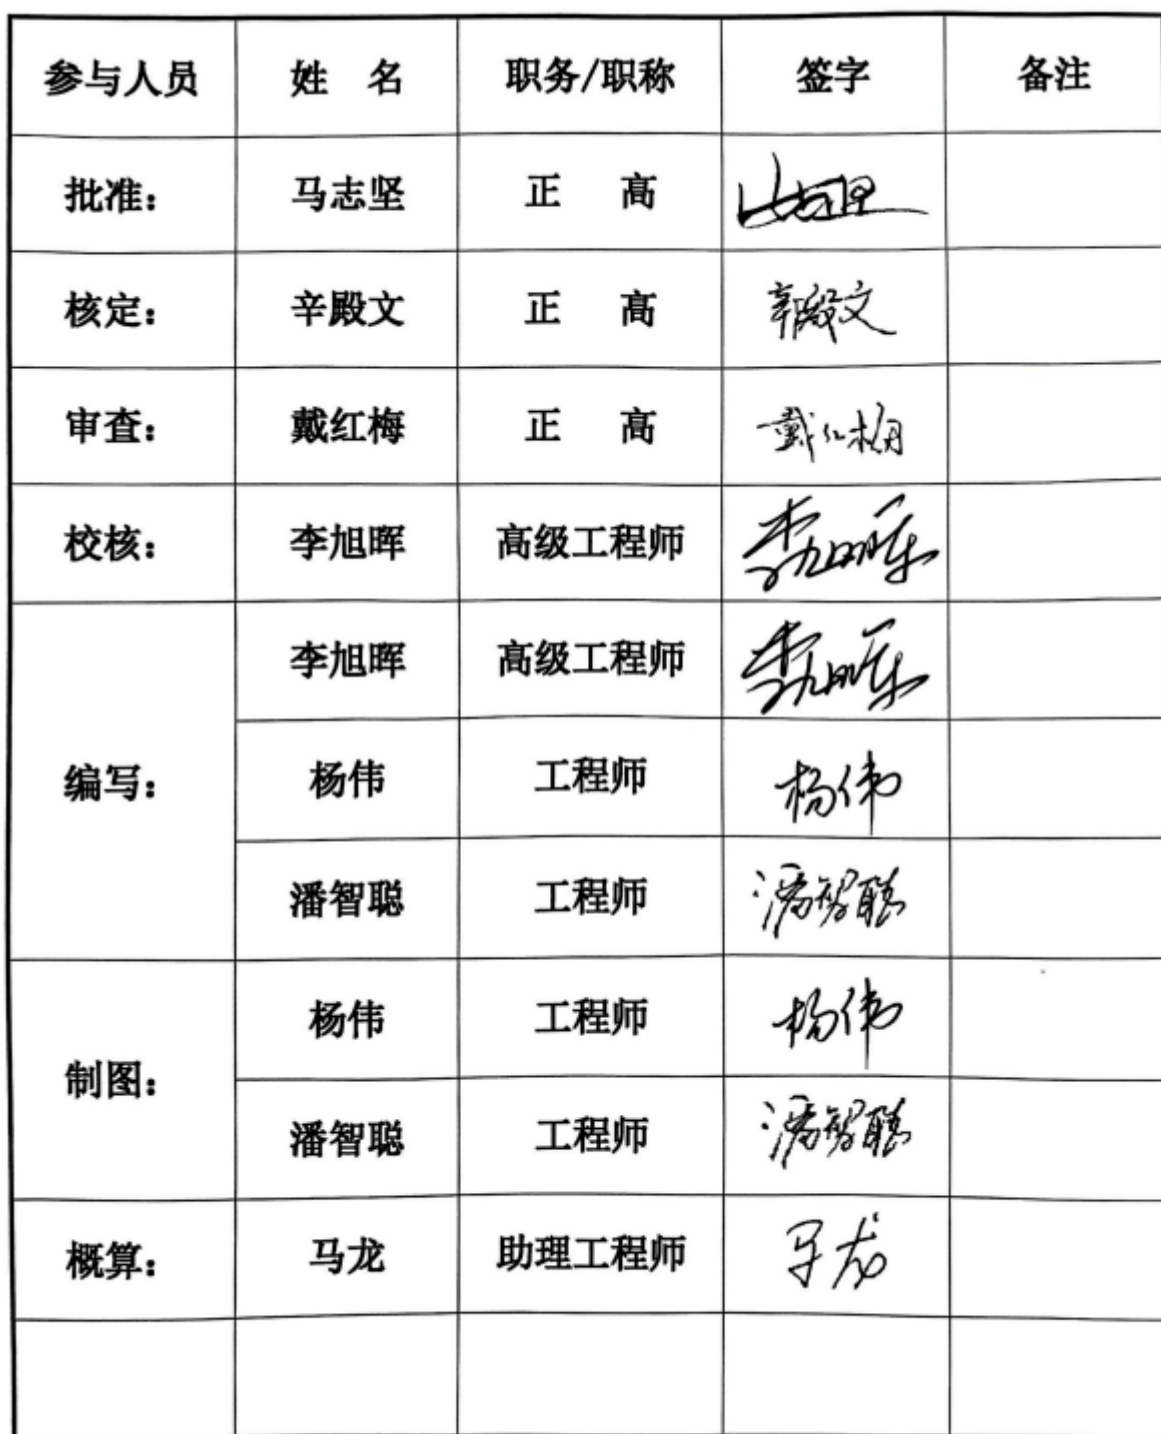 参与人员 姓 名 职务/职称 签字 备注
批准： 马志坚 正 高
核定： 辛殿文 正 高 辛殿文
审查： 戴红梅 正 高 戴红梅
校核： 李旭晖 高级工程师 李旭晖
李旭晖 高级工程师 李旭晖
编写： 杨伟 工程师 杨伟
潘智聪 工程师 潘智聪
杨伟 工程师 杨伟
制图：
潘智聪 工程师 潘智聪
概算： 马龙 助理工程师 马龙